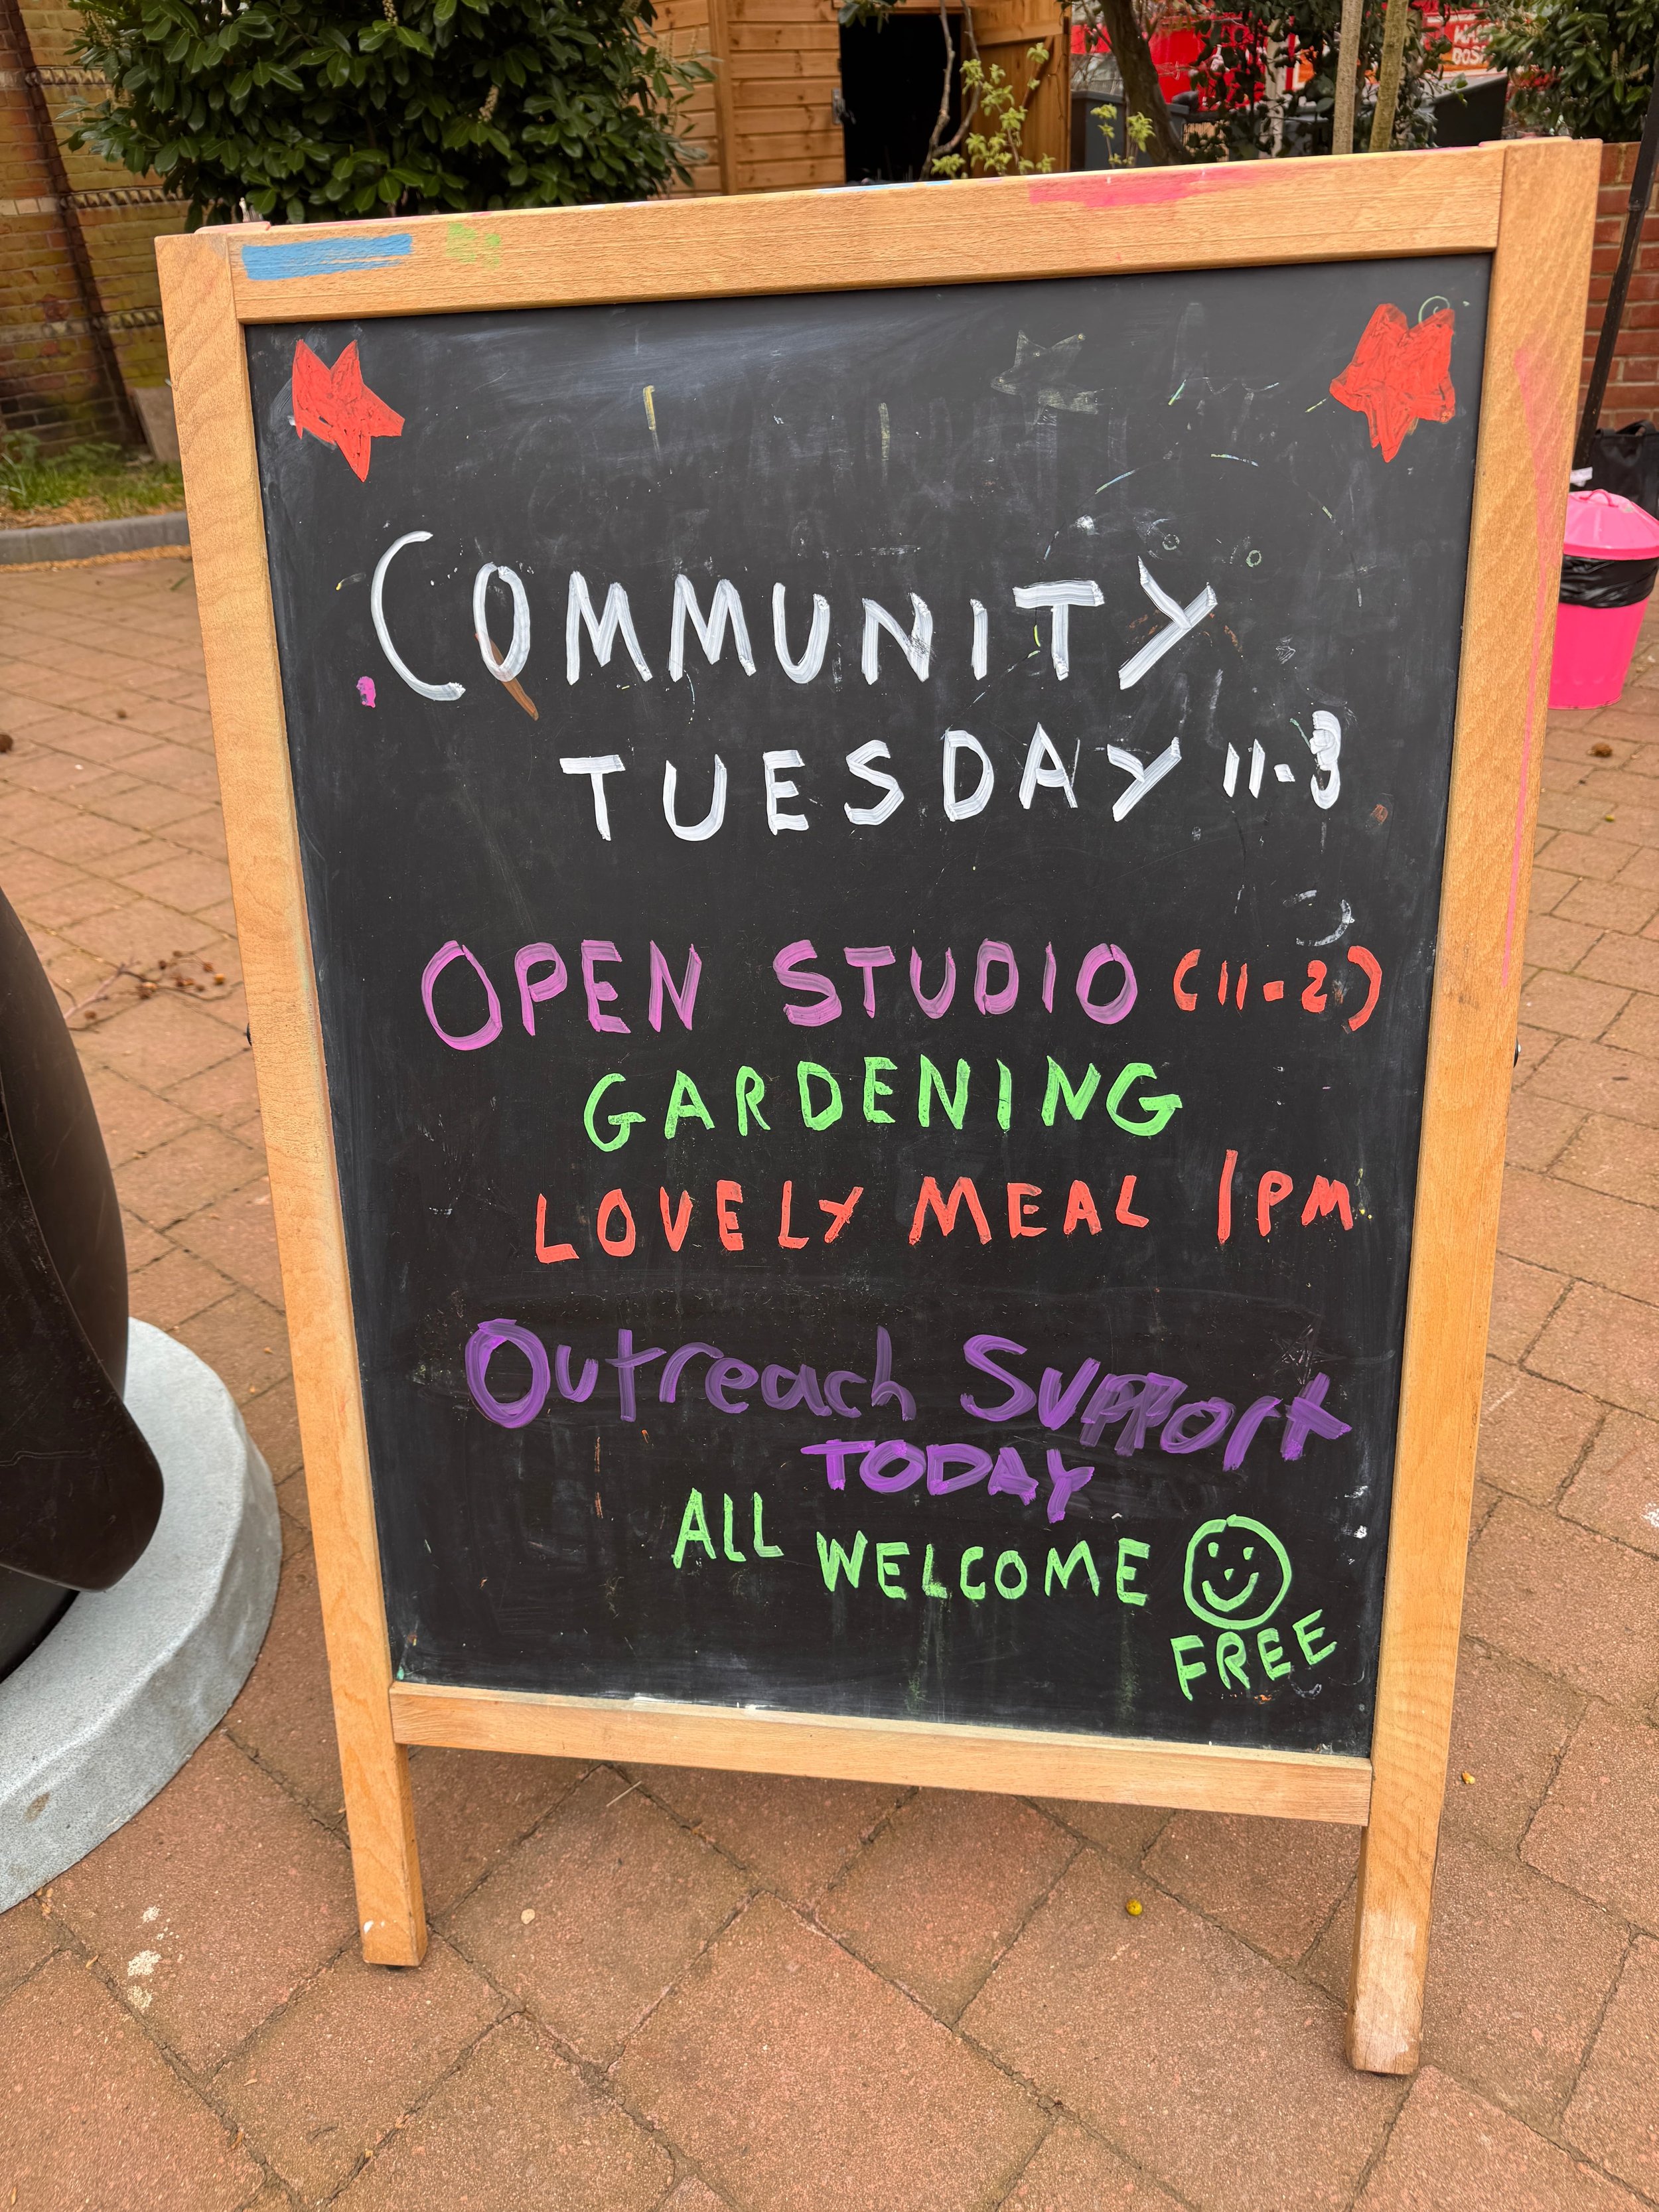 COMMUNITY
TUESDAY 11-3
OPEN STUDIO (11-2)
GARDENING
LOVELY MEAL 1PM
Outreach Support
TODAY
ALL WELCOME
FREE